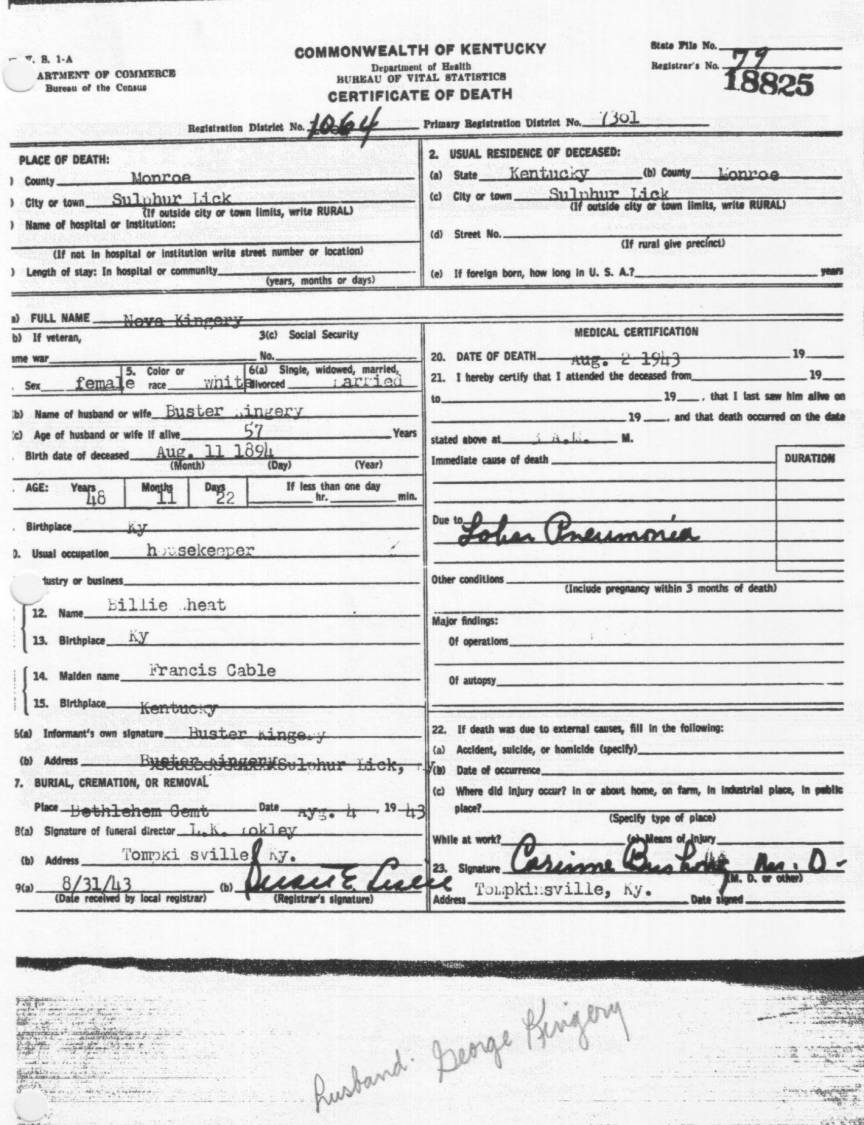 V. B. 1-A
ARTMENT OF COMMERCE
Bureau of the Census
COMMONWEALTH OF KENTUCKY
Department of Health
BUREAU OF VITAL STATISTICS
CERTIFICATE OF DEATH
State File No.
Registrar's No. 79
18825
Registration District No. 1064 Primary Registration District No. 7301
PLACE OF DEATH:
County Monroe
City or town Sulphur Lick
(If outside city or town limits, write RURAL)
Name of hospital or institution:
(If not in hospital or institution write street number or location)
Length of stay: In hospital or community
(years, months or days)
2. USUAL RESIDENCE OF DECEASED:
(a) State Kentucky (b) County Monroe
(c) City or town Sulphur Lick
(If outside city or town limits, write RURAL)
(d) Street No.
(If rural give precinct)
(e) If foreign born, how long in U. S. A.? years
a) FULL NAME Nova Kingery
b) If veteran, 3(c) Social Security
me war No.
Sex female 5. Color or race white 6(a) Single, widowed, married, divorced arried
b) Name of husband or wife Buster ingery
c) Age of husband or wife if alive 57 Years
Birth date of deceased Aug. 11 1894
(Month) (Day) (Year)
AGE: Years Months Days If less than one day
48 11 22 hr. min.
Birthplace Ky
0. Usual occupation housekeeper
dustry or business
12. Name Billie heat
13. Birthplace Ky
14. Maiden name Francis Cable
15. Birthplace Kentucky
6(a) Informant's own signature Buster Kingery
(b) Address Buster Kingery Sulphur Lick, Ky
7. BURIAL, CREMATION, OR REMOVAL
Place Bethlehem Cemt Date Ayg. 4, 1943
8(a) Signature of funeral director L.K. okley
(b) Address Tompki sville Ky.
9(a) 8/31/43 (b)
(Date received by local registrar) (Registrar's signature)
MEDICAL CERTIFICATION
20. DATE OF DEATH Aug. 2 1943 19
21. I hereby certify that I attended the deceased from 19
to 19, that I last saw him alive on
19, and that death occurred on the date
stated above at 3 A.M. M.
Immediate cause of death DURATION
Due to Lobar Pneumonia
Other conditions
(Include pregnancy within 3 months of death)
Major findings:
Of operations
Of autopsy
22. If death was due to external causes, fill in the following:
(a) Accident, suicide, or homicide (specify)
(B) Date of occurrence
(c) Where did injury occur? In or about home, on farm, in industrial place, in public
place?
(Specify type of place)
While at work? (e) Means of injury
23. Signature Corinne Bushong M. D.
(M. D. or other)
Address Tompkinsville, Ky. Date signed
husband. George Kingery